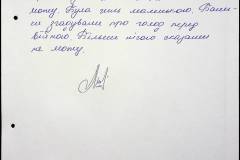 можу. Була ще маленькою. Бать-
ки згадували про голод перед
війною. Більше нічого сказати
не можу.